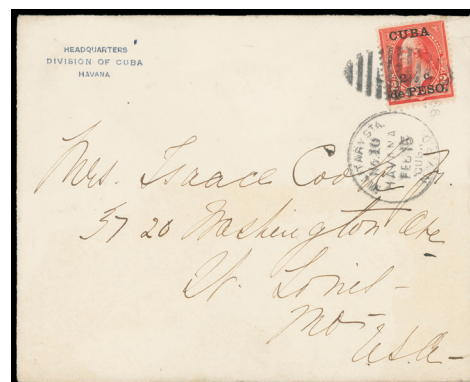 HEADQUARTERS
DIVISION OF CUBA
HAVANA
CUBA
de PESO.
HAVANA
FEB 15
Mrs. Isaace Cook Jr.
5720 Washington Ave
St. Louis-
Mo-
U.S.A-